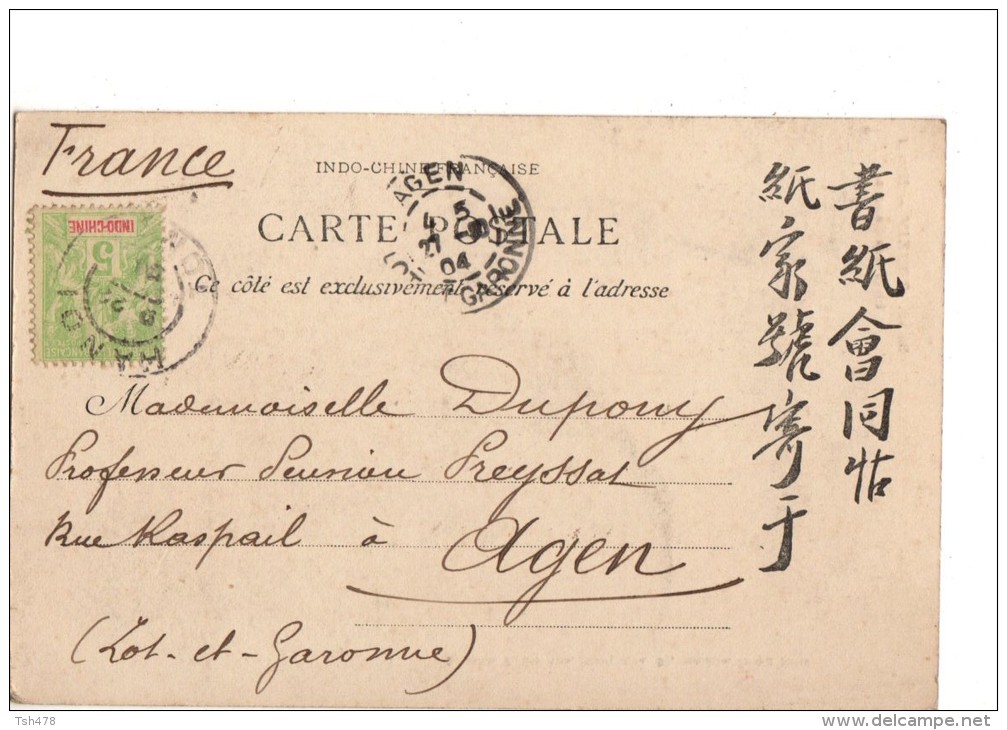 France
INDO-CHINE FRANÇAISE
CARTE POSTALE
Ce côté est exclusivement réservé à l'adresse
INDO-CHINE
5
HANOI
AGEN
LOT
GARONNE
04
Mademoiselle Dupouy
Professeur Pension Preyssat
Rue Raspail à Agen
(Lot-et-Garonne)
書紙會同
紙家號寄于
Tsh478
www.delcampe.net